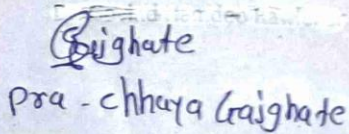 Gaighate
pra - chhaya Gaighate